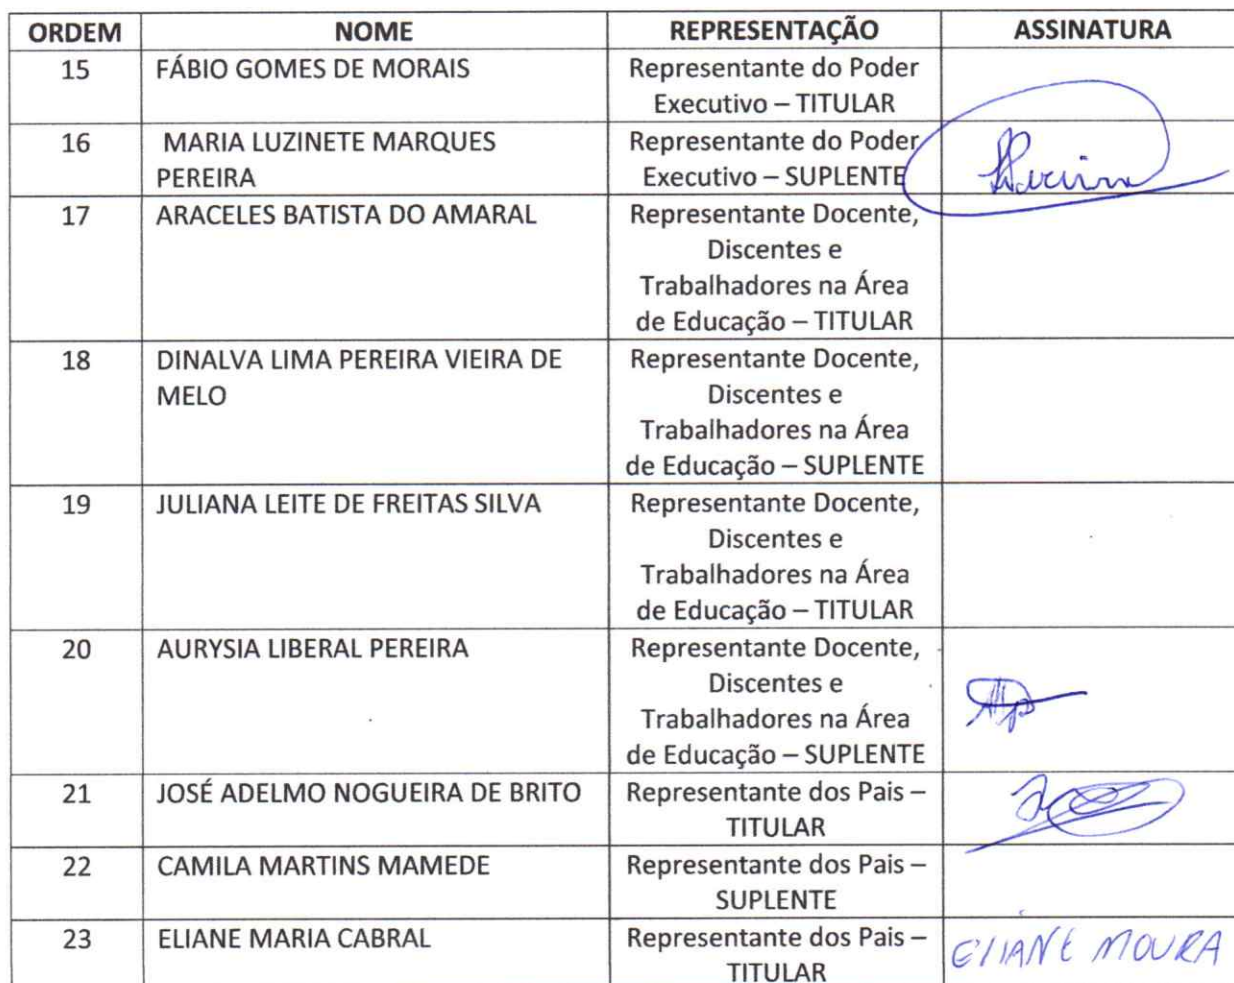 ORDEM NOME REPRESENTAÇÃO ASSINATURA
15 FÁBIO GOMES DE MORAIS Representante do Poder
Executivo – TITULAR
16 MARIA LUZINETE MARQUES Representante do Poder
PEREIRA Executivo – SUPLENTE
17 ARACELES BATISTA DO AMARAL Representante Docente,
Discentes e
Trabalhadores na Área
de Educação – TITULAR
18 DINALVA LIMA PEREIRA VIEIRA DE Representante Docente,
MELO Discentes e
Trabalhadores na Área
de Educação – SUPLENTE
19 JULIANA LEITE DE FREITAS SILVA Representante Docente,
Discentes e
Trabalhadores na Área
de Educação – TITULAR
20 AURYSIA LIBERAL PEREIRA Representante Docente,
Discentes e
Trabalhadores na Área
de Educação – SUPLENTE
21 JOSÉ ADELMO NOGUEIRA DE BRITO Representante dos Pais –
TITULAR
22 CAMILA MARTINS MAMEDE Representante dos Pais –
SUPLENTE
23 ELIANE MARIA CABRAL Representante dos Pais – ELIANE MOURA
TITULAR